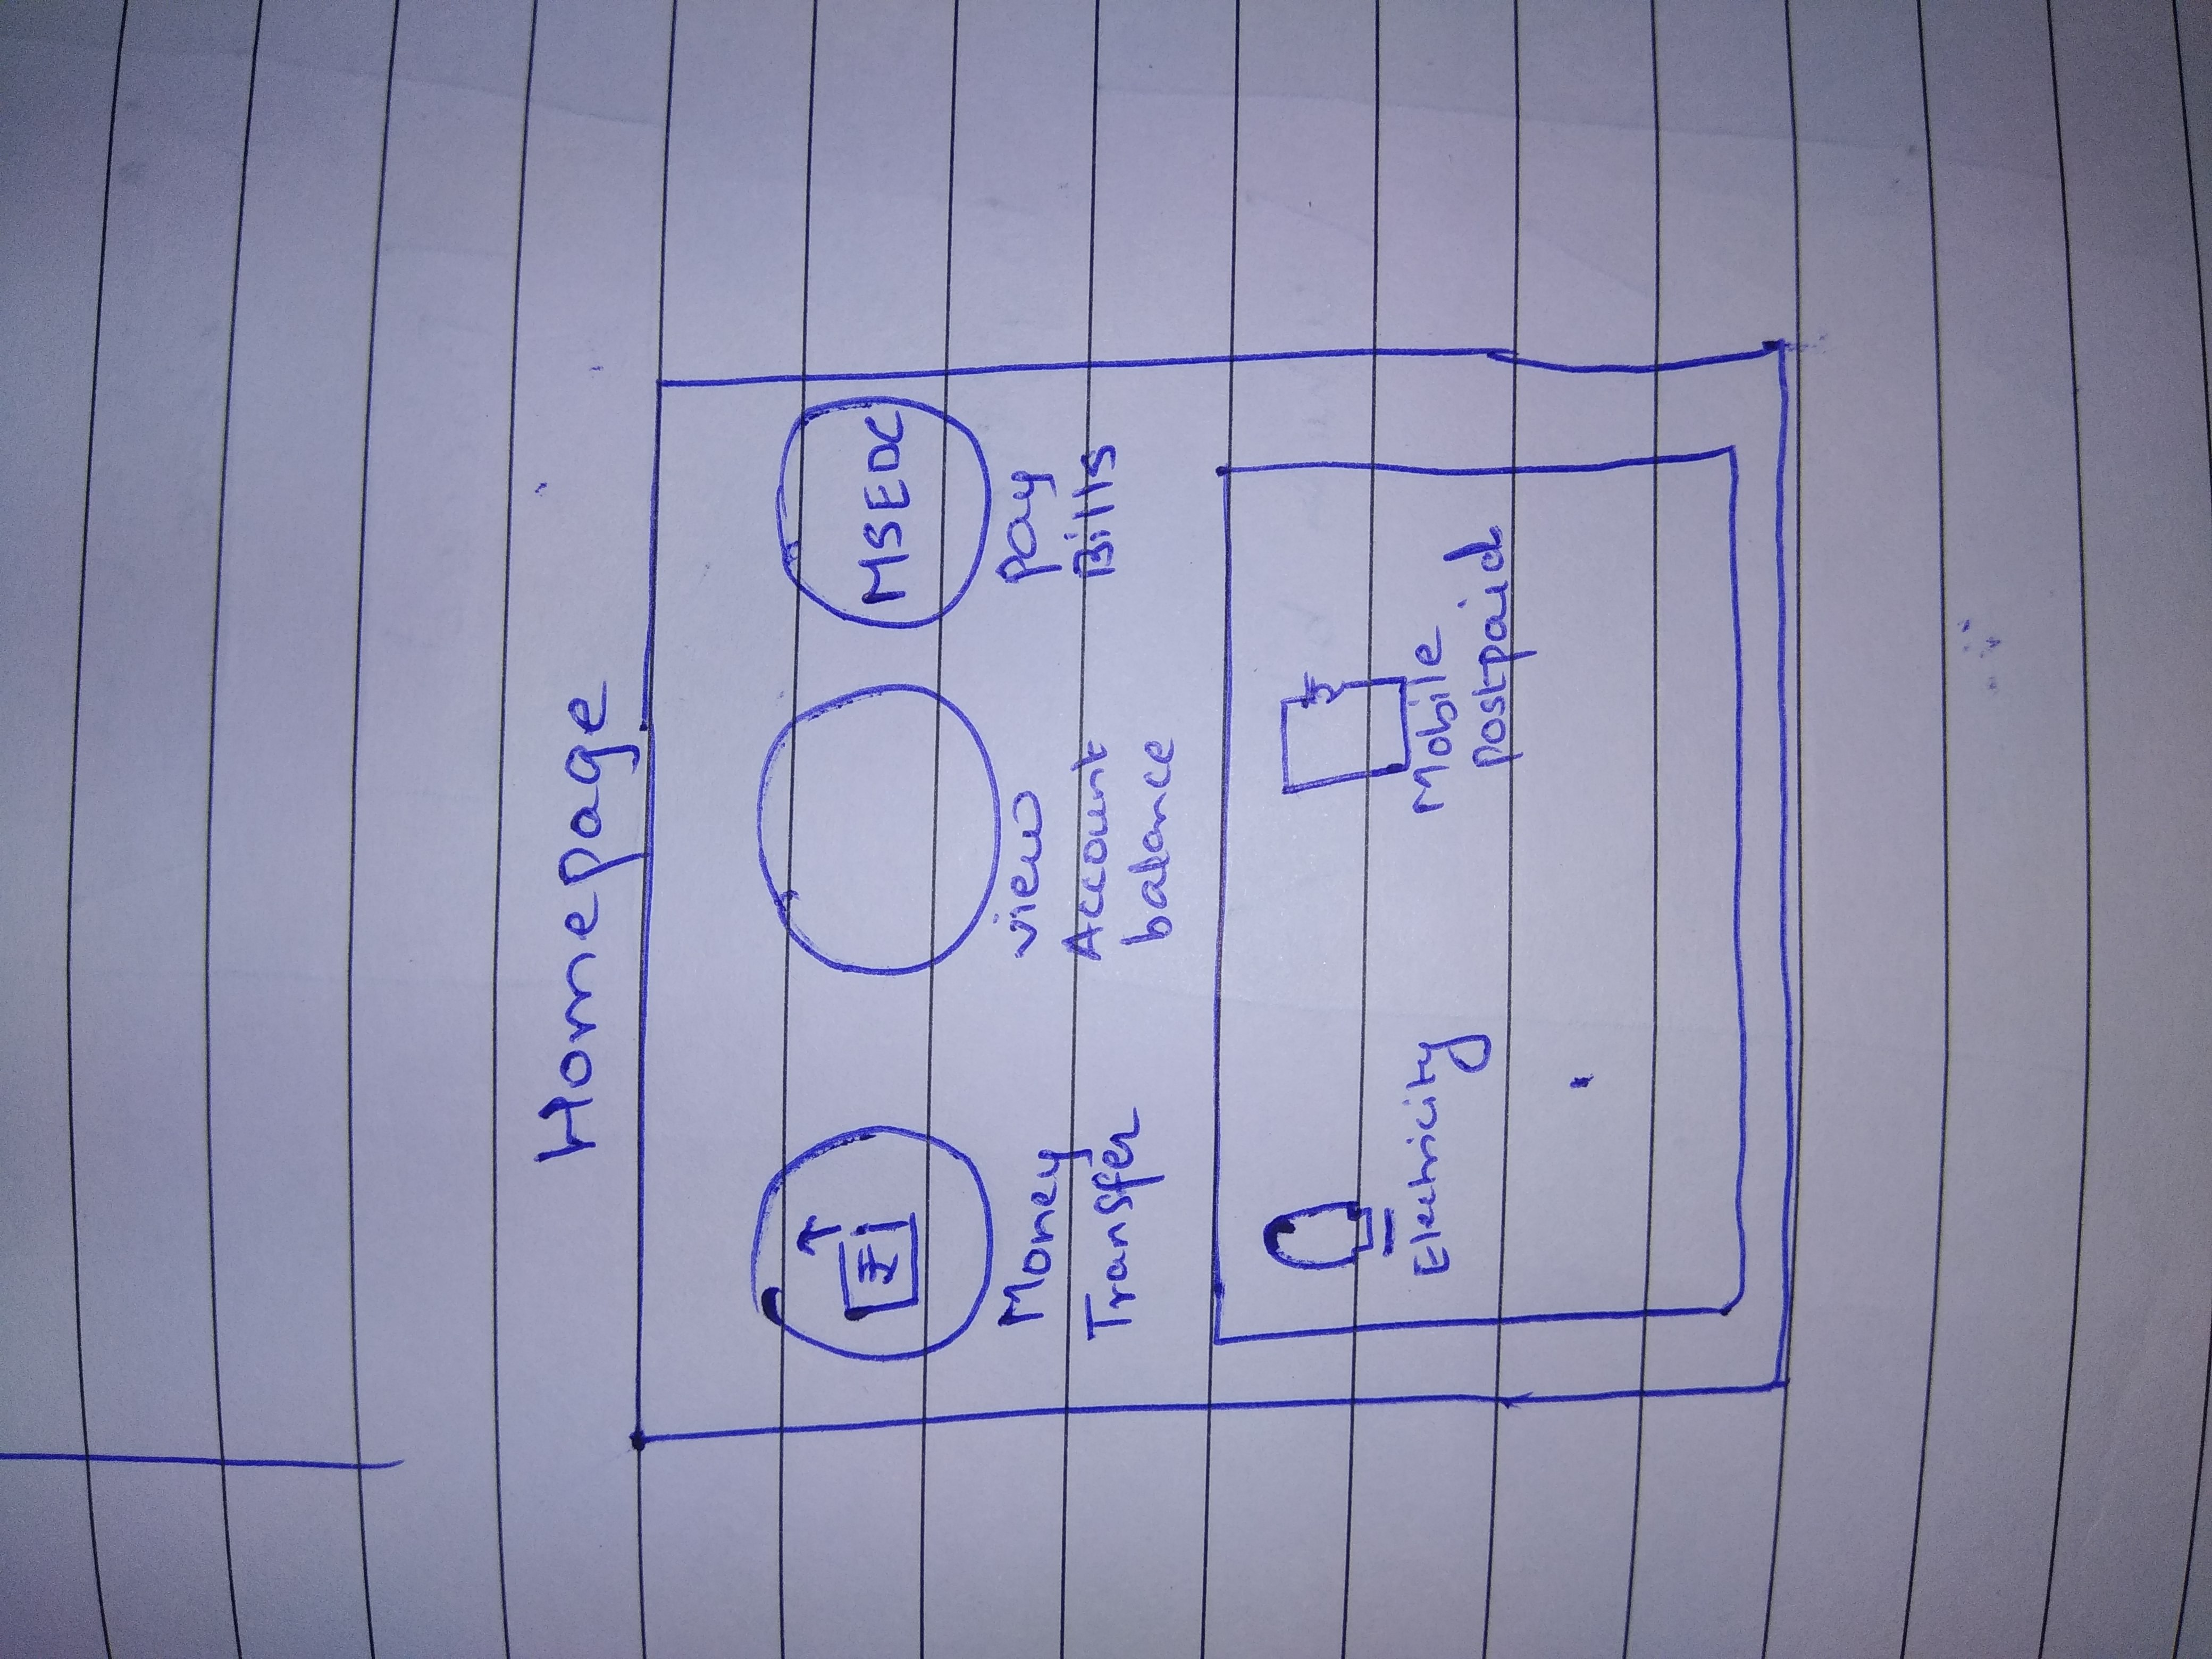 Homepage
₹
MSEDC
Money
Transfer
view
Account
balance
pay
Bills
₹
Electricity
Mobile
postpaid